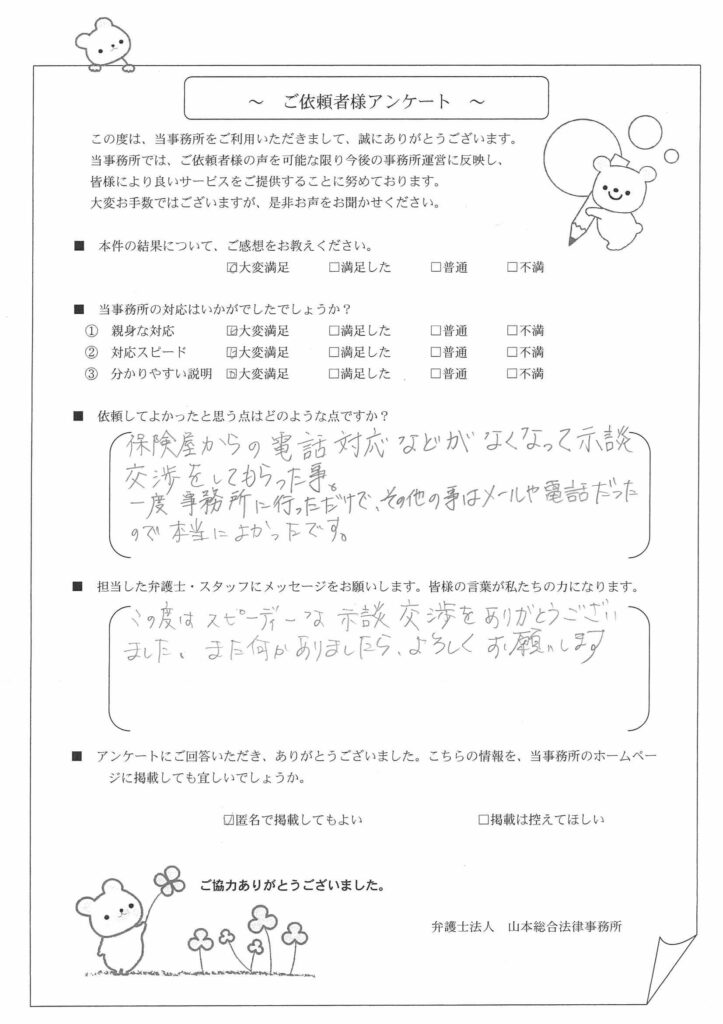 ～ ご依頼者様アンケート ～
この度は、当事務所をご利用いただきまして、誠にありがとうございます。
当事務所では、ご依頼者様の声を可能な限り今後の事務所運営に反映し、
皆様により良いサービスをご提供することに努めております。
大変お手数ではございますが、是非お声をお聞かせください。
■ 本件の結果について、ご感想をお教えください。
☑大変満足 □満足した □普通 □不満
■ 当事務所の対応はいかがでしたでしょうか？
① 親身な対応 ☑大変満足 □満足した □普通 □不満
② 対応スピード ☑大変満足 □満足した □普通 □不満
③ 分かりやすい説明 ☑大変満足 □満足した □普通 □不満
■ 依頼してよかったと思う点はどのような点ですか？
保険屋からの電話対応などがなくなって示談
交渉をしてもらった事。
一度事務所に行っただけで、その他の事はメールや電話だった
ので本当によかったです。
■ 担当した弁護士・スタッフにメッセージをお願いします。皆様の言葉が私たちの力になります。
この度はスピーディーな示談交渉をありがとうござい
ました、また何かありましたら、よろしくお願いします
■ アンケートにご回答いただき、ありがとうございました。こちらの情報を、当事務所のホームペー
ジに掲載しても宜しいでしょうか。
☑匿名で掲載してもよい □掲載は控えてほしい
ご協力ありがとうございました。
弁護士法人 山本総合法律事務所